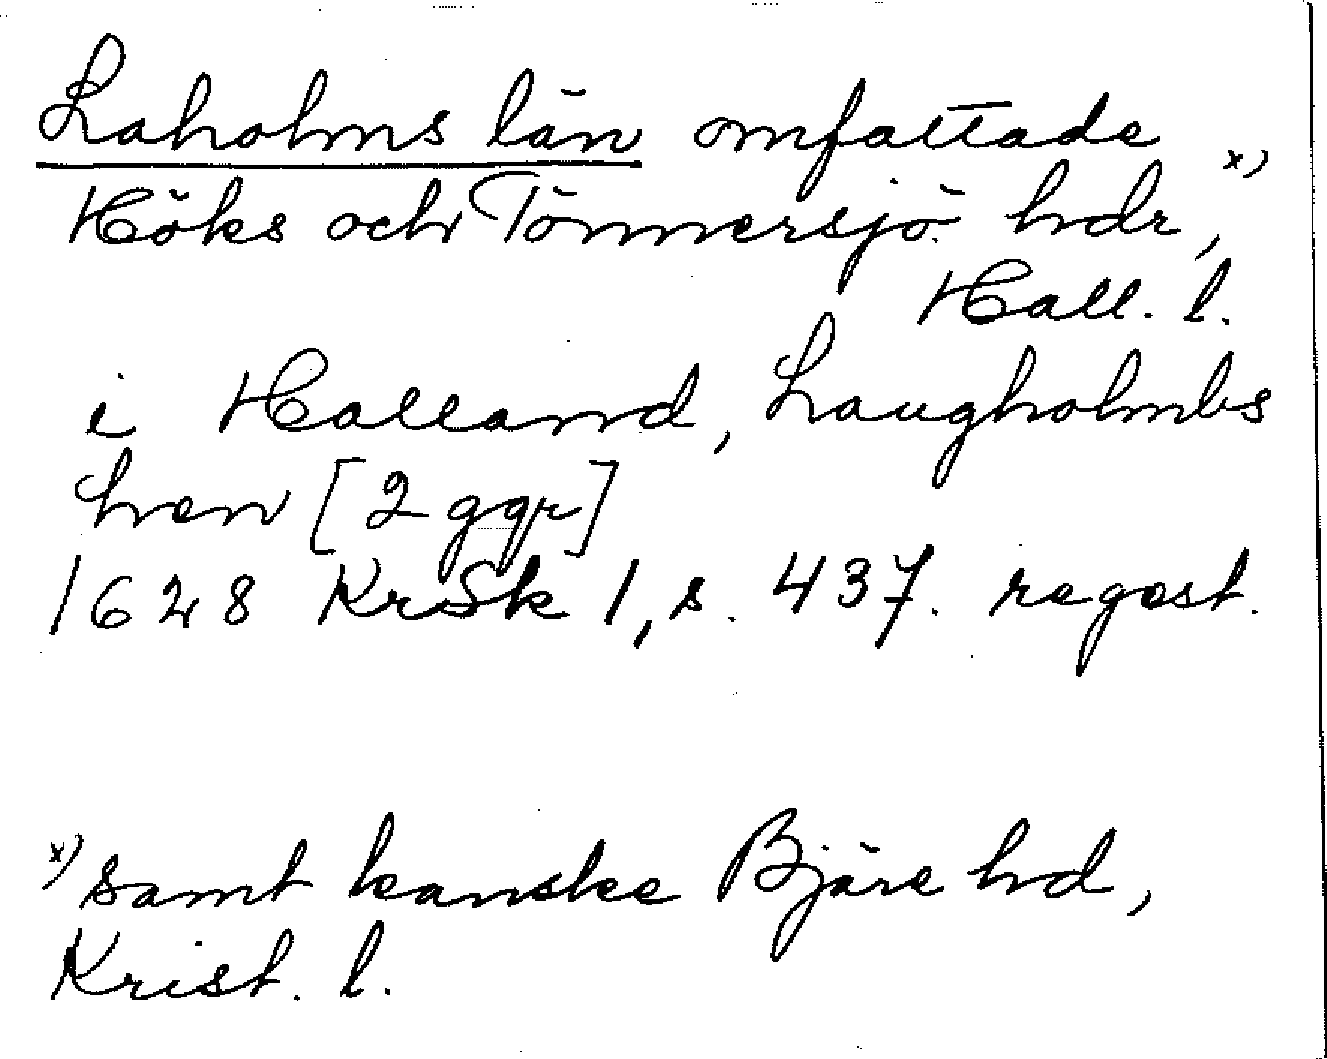 Laholms län omfattade
Höks och Tönnersjö hdr, x)
Hall. l.
i Halland, Laugholmbs
Lren [2 ggr]
1628 KrSk 1, s. 437. regest.
x) samt kanske Bjäre hd,
Krist. l.